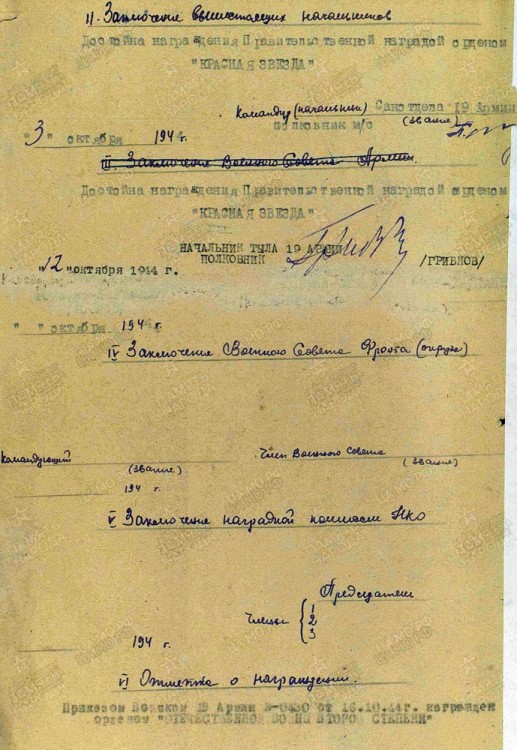 II. Заключение вышестоящих начальников
Достойна награждения Правительственной наградой орденом
"КРАСНАЯ ЗВЕЗДА"
Командир (начальник) Санотдела 19 Армии
полковник м/с (звание)
"3" октября 1944 г.
III. Заключение Военного Совета Армии.
Достойна награждения Правительственной наградой орденом
"КРАСНАЯ ЗВЕЗДА"
НАЧАЛЬНИК ТЫЛА 19 АРМИИ
ПОЛКОВНИК /ГРИБКОВ/
"12" октября 1944 г.
" " октября 194 г.
IV Заключение Военного Совета Фронта (округа)
Командующий Член Военного Совета
(звание) (звание)
194 г.
V Заключение наградной комиссии НКО
Председатель
Члены 1
2
3
194 г.
VI Отметка о награждении.
Приказом Войскам 19 Армии № 0430 от 16.10.44г. награжден
орденом "ОТЕЧЕСТВЕННОЙ ВОЙНЫ ВТОРОЙ СТЕПЕНИ"